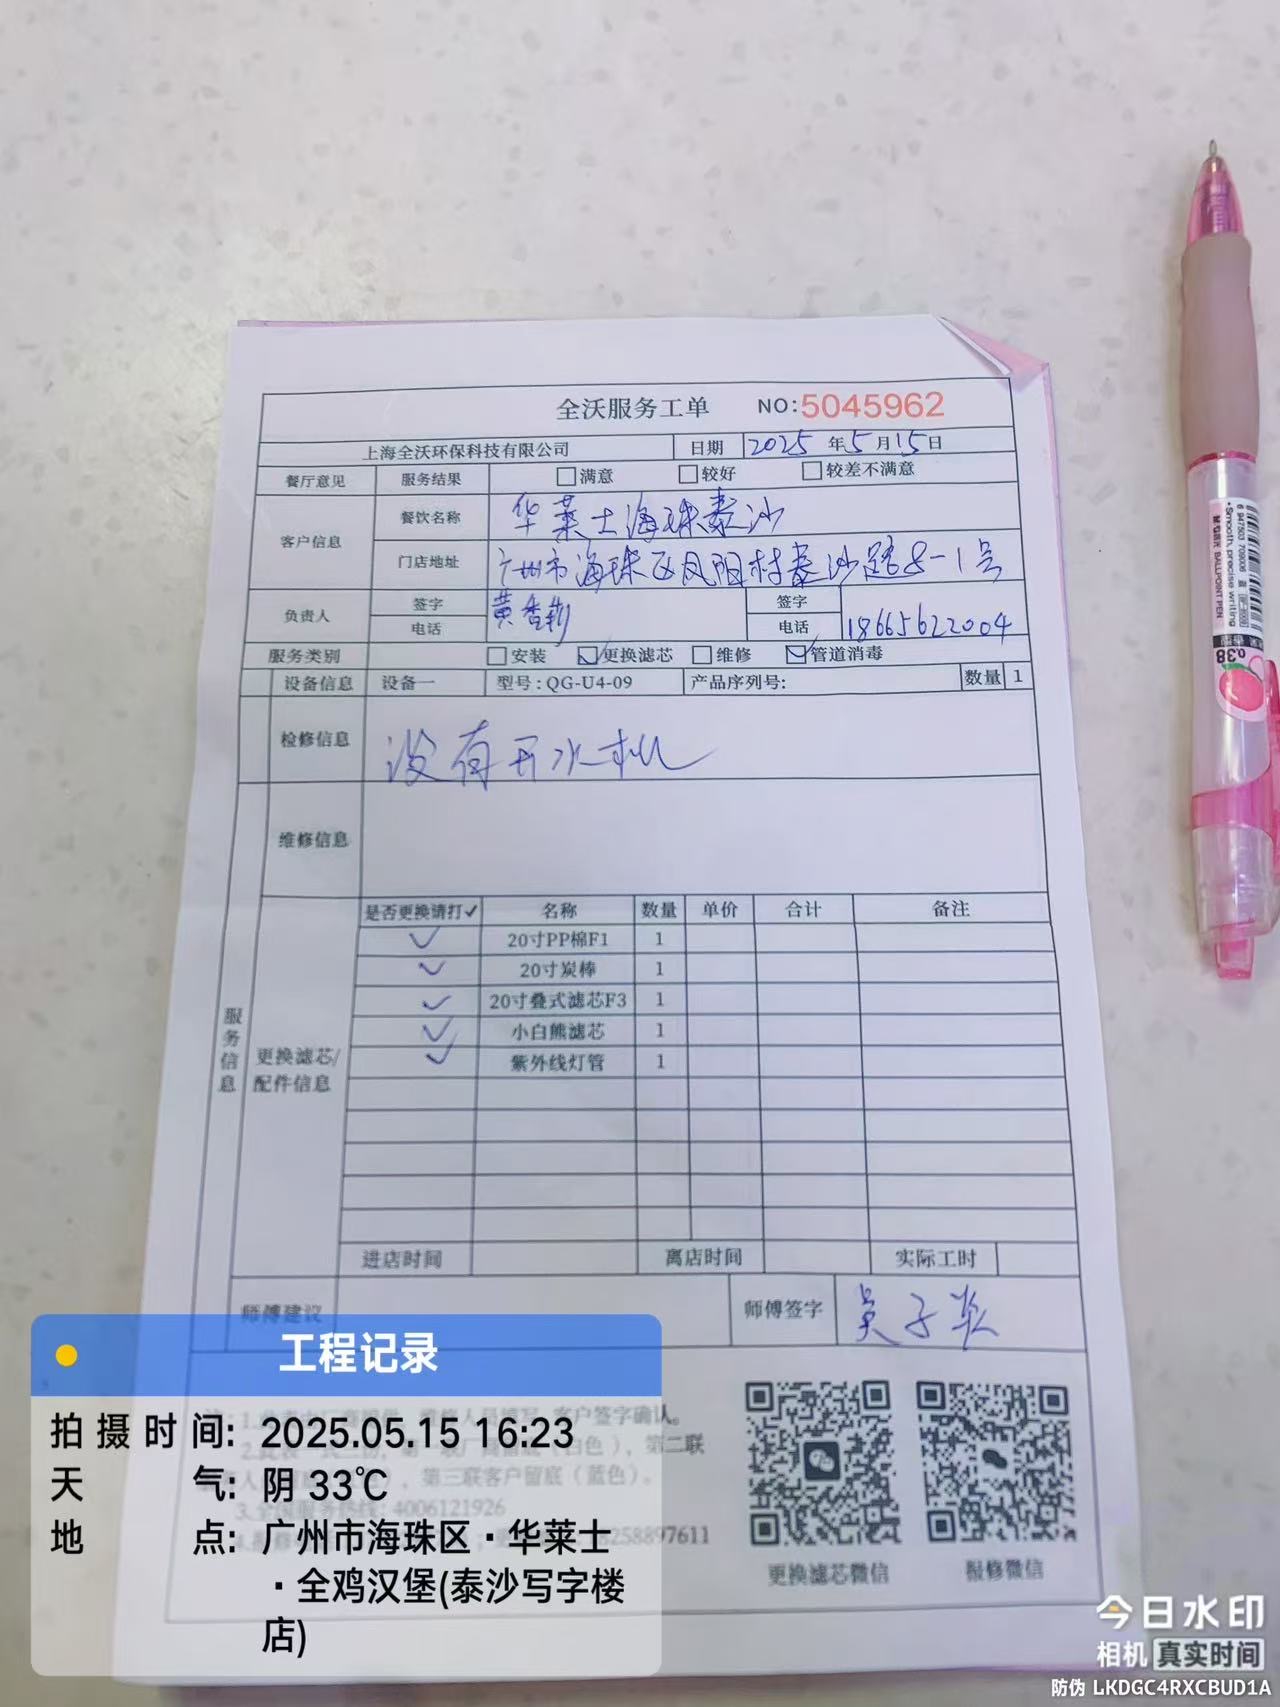 全沃服务工单 NO:5045962
上海全沃环保科技有限公司 日期 2025 年5月15日
餐厅意见 服务结果 满意 较好 较差不满意
客户信息 餐饮名称 华莱士海珠泰沙
门店地址 广州市海珠区凤阳村泰沙路8-1号
负责人 签字 黄香莉 签字
电话 电话 18665622004
服务类别 安装 更换滤芯 维修 管道消毒
设备信息 设备一 型号:QG-U4-09 产品序列号: 数量 1
检修信息 没有开水机
维修信息
服务信息
更换滤芯/
配件信息
是否更换请打✓ 名称 数量 单价 合计 备注
✓ 20寸PP棉F1 1
✓ 20寸炭棒 1
✓ 20寸叠式滤芯F3 1
✓ 小白熊滤芯 1
✓ 紫外线灯管 1
进店时间 离店时间 实际工时
师傅建议 师傅签字 吴子
客户签字确认。
第二联
第三联客户留底(蓝色)。
3.全国服务热线:4006121926
18258897611
更换滤芯微信 报修微信
工程记录
拍摄时间: 2025.05.15 16:23
天气: 阴 33℃
地点: 广州市海珠区·华莱士
·全鸡汉堡(泰沙写字楼
店)
今日水印
相机 真实时间
防伪 LKDGC4RXCBUD1A
Smooth, precise writing
BALLPOINT PEN
0.38